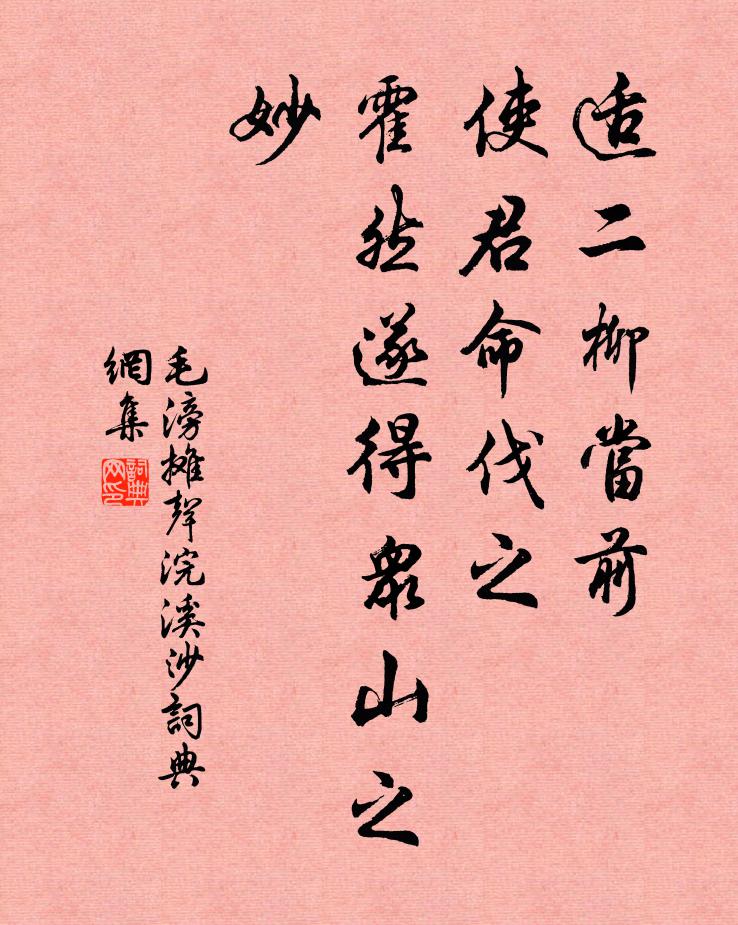 适二柳當前
使君命伐之
霍然遂得眾山之
妙
毛滂攤聲浣溪沙詞典
網集
詞典
网印